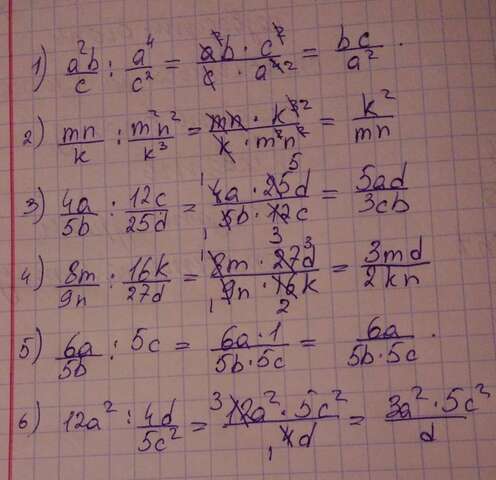 1) a²b/c : a⁴/c² = a²b · c²/c · a⁴ ² = bc/a² .
2) mn/k : m²n²/k³ = mn · k³ ²/k · m²n² = k²/mn
3) 4a/5b : 12c/25d = ¹4a · 25⁵d/₁5b · 12₃c = 5ad/3cb
4) 8m/9n : 16k/27d = ¹8m · 27³d/₁9n · 16₂k = 3md/2kn
5) 6a/5b : 5c = 6a · 1/5b · 5c = 6a/5b · 5c .
6) 12a² : 4d/5c² = ³12a² · 5c²/₁4d = 3a² · 5c²/d